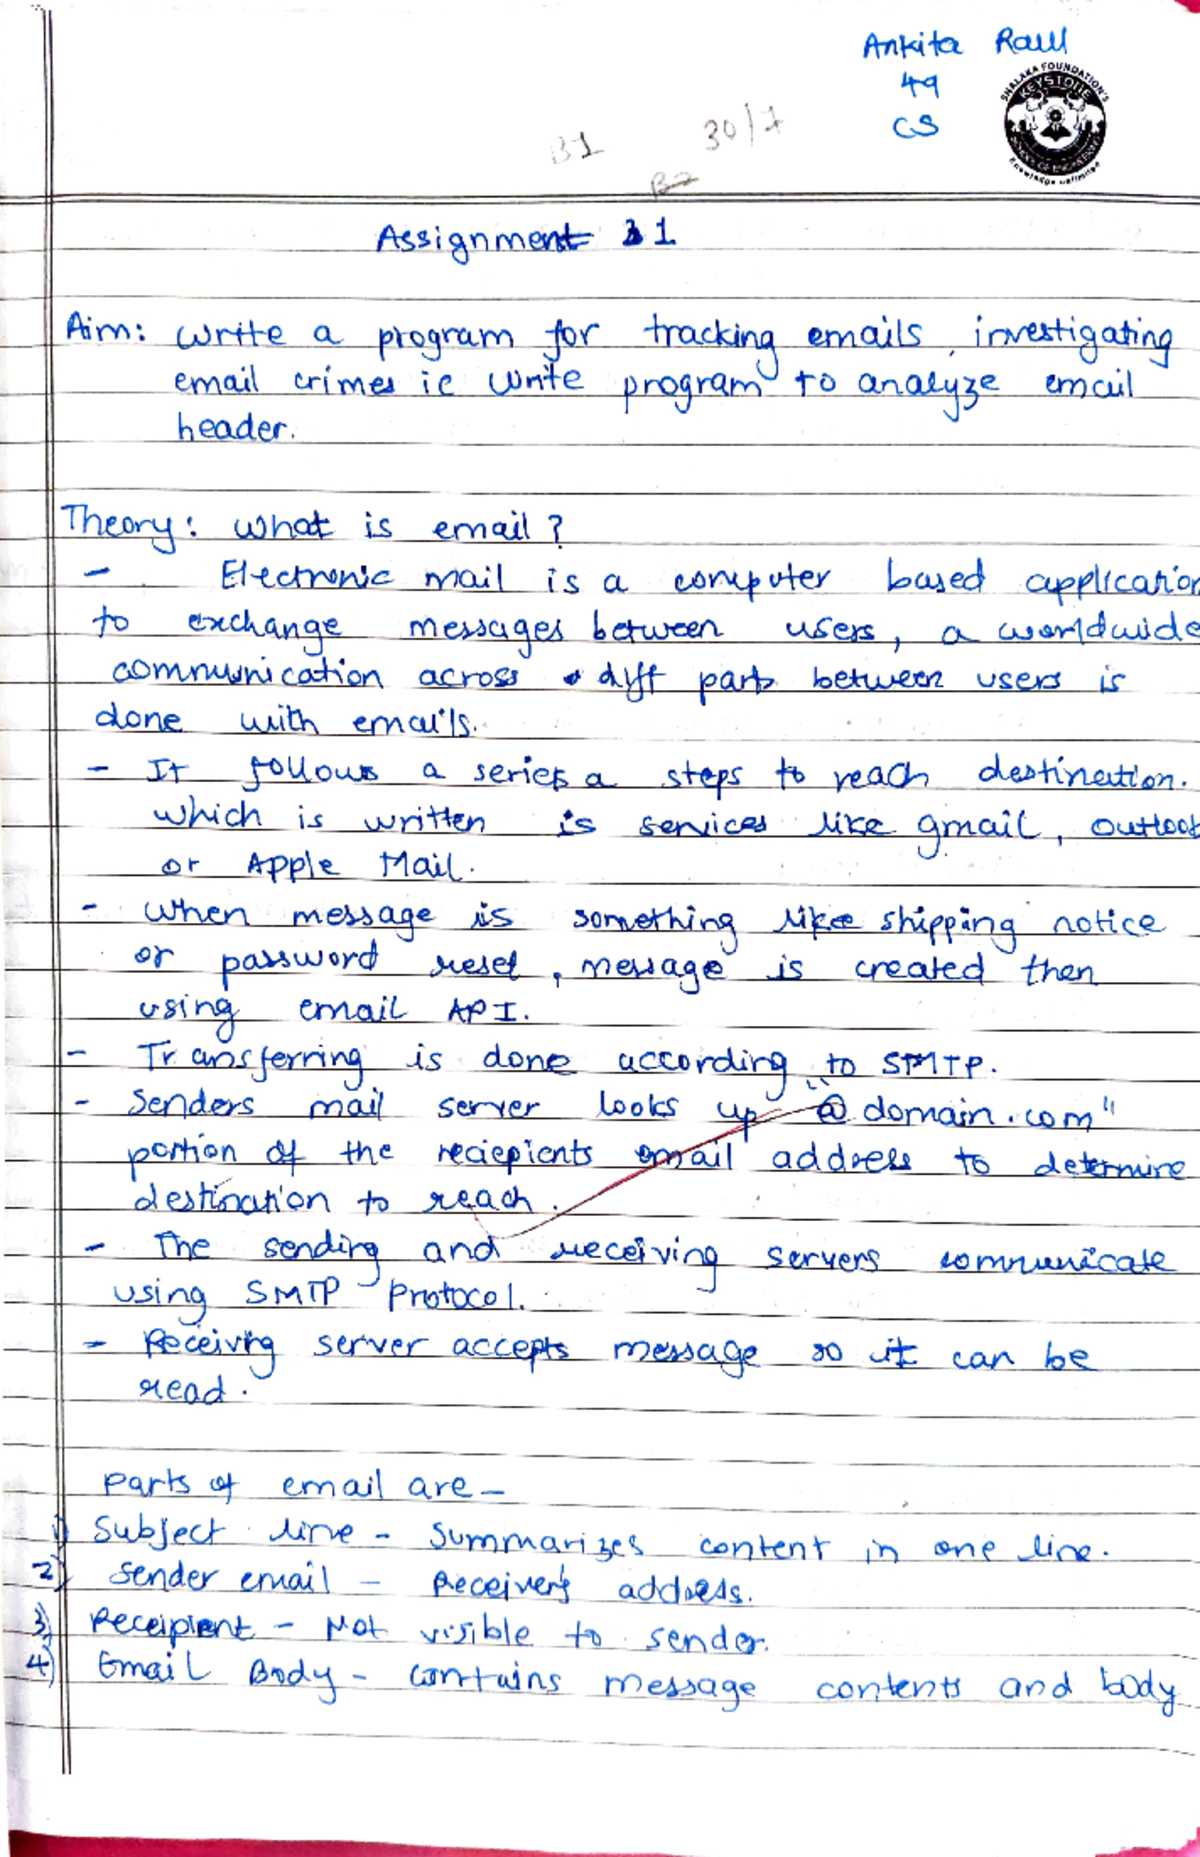 Ankita Raul
49
CS
SHALAKA FOUNDATION'S
KEYSTONE
SCHOOL OF ENGINEERING
Knowledge unlimited
B1 30/7
B2
Assignment 1
Aim: Write a program for tracking emails, investigating
email crimes ie write program to analyze email
header.
Theory: What is email?
- Electronic mail is a computer based application
to exchange messages between users, a worldwide
communication across diff parts between users is
done with emails.
- It follows a series a steps to reach destination.
which is written is services like gmail, outlook
or Apple Mail.
- When message is something like shipping notice
or password reset, message is created then
using email API.
- Transferring is done according to SMTP.
- Senders mail server looks up "@domain.com"
portion of the reciepients email address to determine
destination to reach.
- The sending and receiving servers communicate
using SMTP Protocol.
- Receiving server accepts message so it can be
read.
Parts of email are -
1) Subject line - Summarizes content in one line.
2) Sender email - Receiver's address.
3) Receipient - Not visible to sender.
4) Email Body - contains message contents and body